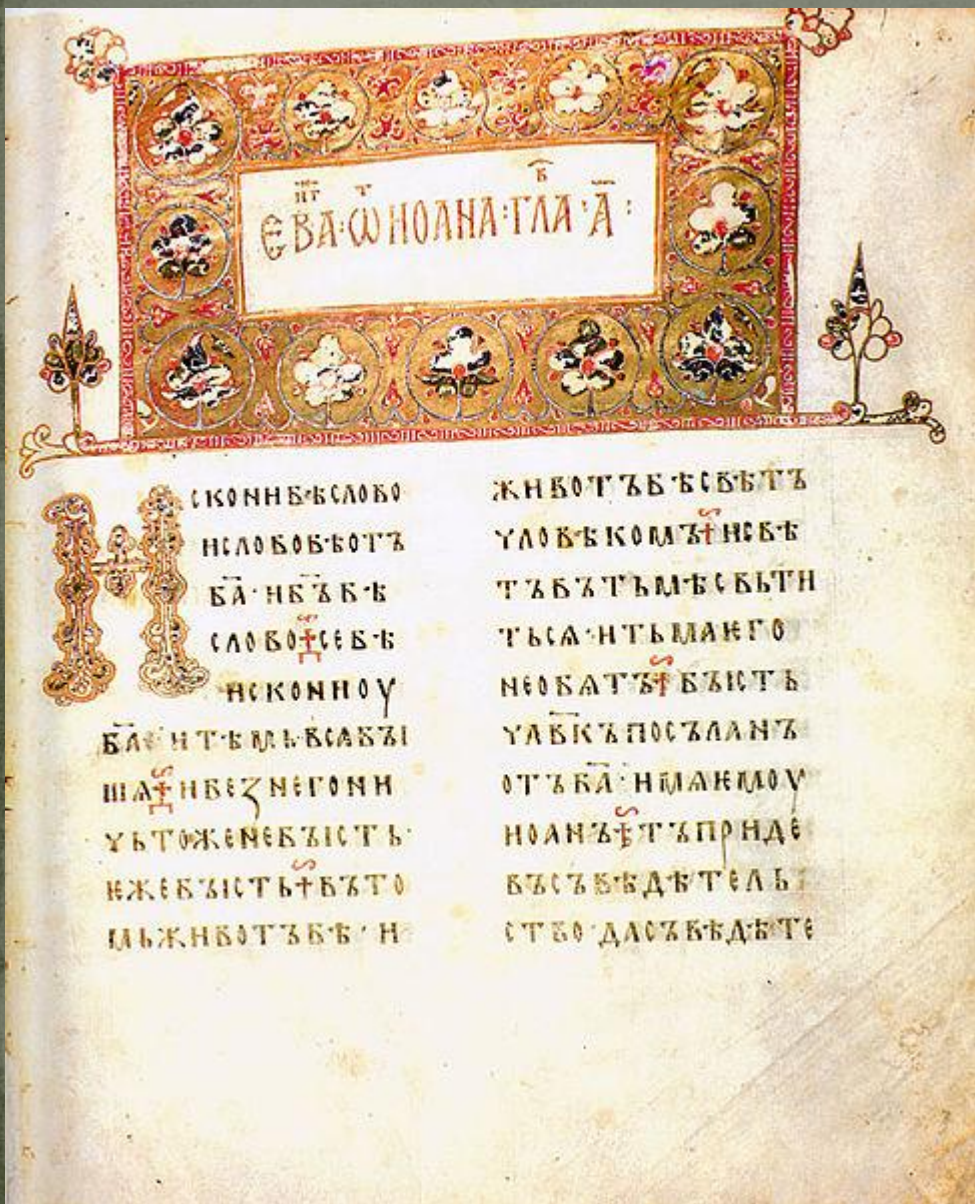 ЕВА҃Г · Ѿ ИОАНА · ГЛА · А҃ :
ИСКОНИ БѢ СЛОВО
И СЛОВО БѢ ОТЪ
БА҃ · И БЪ҃ БѢ
СЛОВО СЕ БѢ
ИСКОНИ ОУ
БА҃ И ТѢМЬ ВСѦ БЫ
ШѦ И БЕЗ НЕГО НИ
ЧЬТОЖЕ НЕ БЫСТЬ ·
ѤЖЕ БЫСТЬ ВЪ ТО
МЬ ЖИВОТЪ БѢ · И
ЖИВОТЪ БѢ СВѢТЪ
ЧЛОВѢКОМЪ И СВѢ
ТЪ ВЪ ТЬМѢ СВЬТИ
ТЬСѦ · И ТЬМА ѤГО
НЕ ОБѦТЪ БЫСТЬ
ЧЛВ҃КЪ ПОСЪЛАНЪ
ОТЪ БА҃ · ИМѦ ѤМОУ
ИОАНЪ ТЪ ПРИДЕ
ВЪ СЪВѢДѢТЕЛЬ
СТВО · ДА СЪВѢДѢТЕ